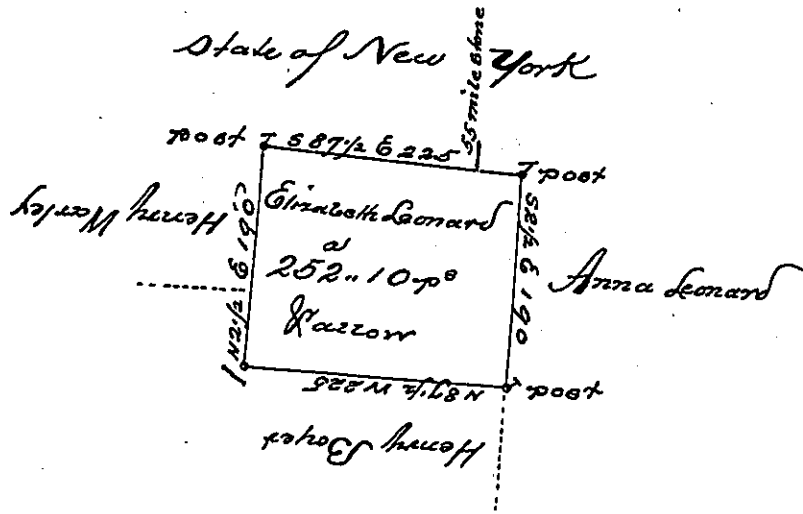 State of New York
55 mile Stone
post
S 87 1/2 E 225
post
Henry Warley
N 2 1/2 E 190
Elizabeth Leonard
a
252 „ 10 ps
S 2 1/2 E 190
Anna Leonard
N 87 1/2 W 225
post
Henry Boyer